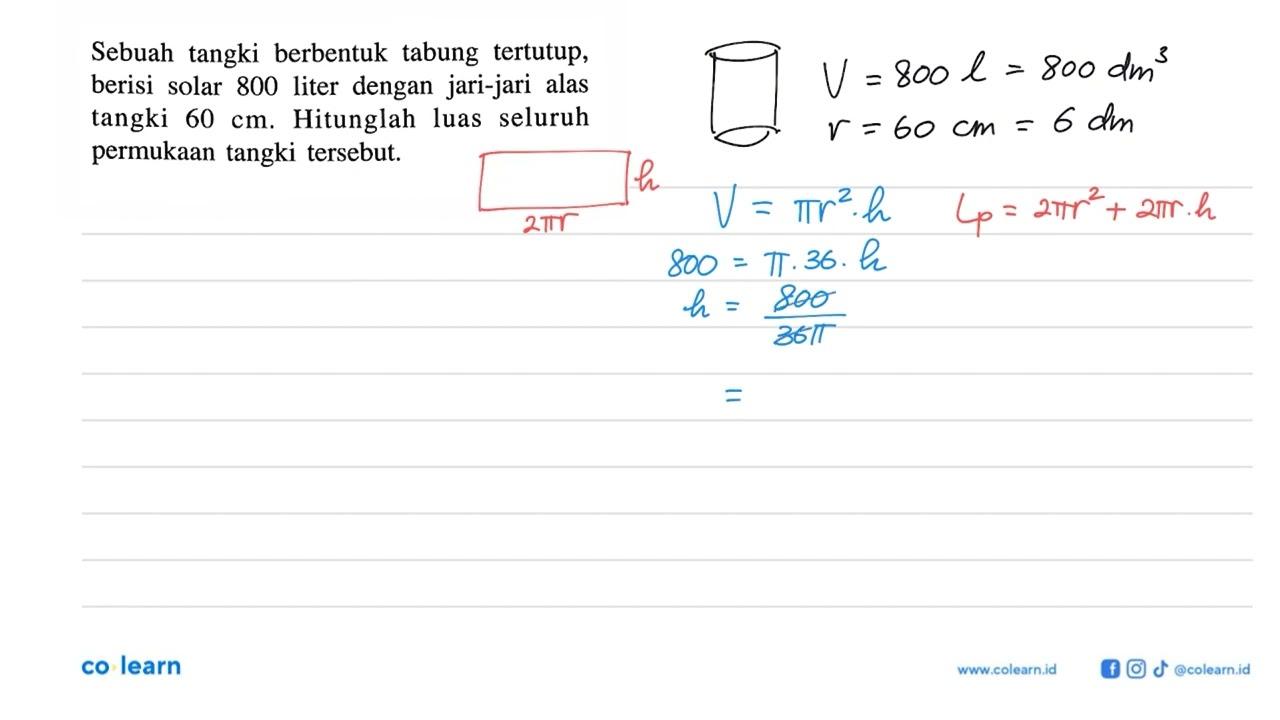 Sebuah tangki berbentuk tabung tertutup,
berisi solar 800 liter dengan jari-jari alas
tangki 60 cm. Hitunglah luas seluruh
permukaan tangki tersebut.
V = 800 l = 800 dm³
r = 60 cm = 6 dm
h
2πr
V = πr².h
Lp = 2πr² + 2πr.h
800 = π.36.h
h = 800
36π
=
co learn
www.colearn.id
@colearn.id